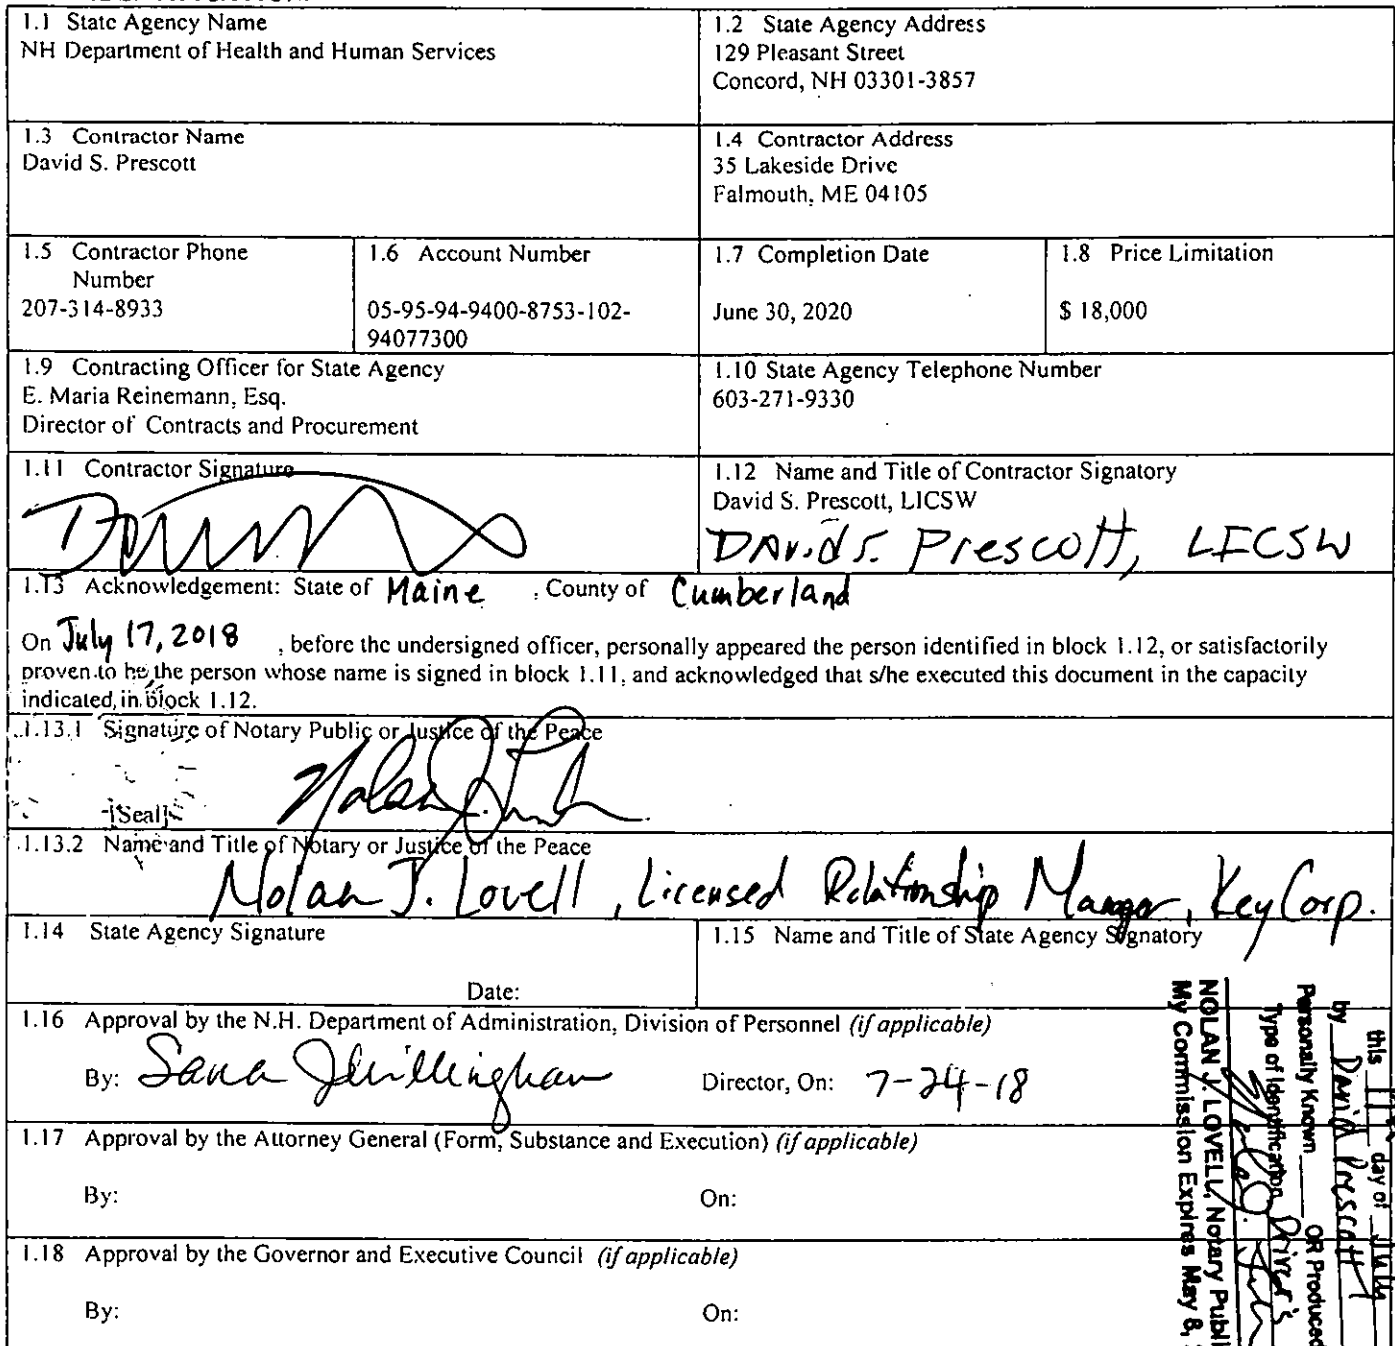 1.1 State Agency Name
NH Department of Health and Human Services
1.2 State Agency Address
129 Pleasant Street
Concord, NH 03301-3857
1.3 Contractor Name
David S. Prescott
1.4 Contractor Address
35 Lakeside Drive
Falmouth, ME 04105
1.5 Contractor Phone
Number
207-314-8933
1.6 Account Number
05-95-94-9400-8753-102-
94077300
1.7 Completion Date
June 30, 2020
1.8 Price Limitation
$ 18,000
1.9 Contracting Officer for State Agency
E. Maria Reinemann, Esq.
Director of Contracts and Procurement
1.10 State Agency Telephone Number
603-271-9330
1.11 Contractor Signature
1.12 Name and Title of Contractor Signatory
David S. Prescott, LICSW
David S. Prescott, LICSW
1.13 Acknowledgement: State of Maine , County of Cumberland
On July 17, 2018 , before the undersigned officer, personally appeared the person identified in block 1.12, or satisfactorily
proven to be the person whose name is signed in block 1.11, and acknowledged that s/he executed this document in the capacity
indicated in block 1.12.
1.13.1 Signature of Notary Public or Justice of the Peace
[Seal]
1.13.2 Name and Title of Notary or Justice of the Peace
Nolan J. Lovell, Licensed Relationship Manger, KeyCorp.
1.14 State Agency Signature
Date:
1.15 Name and Title of State Agency Signatory
1.16 Approval by the N.H. Department of Administration, Division of Personnel (if applicable)
By: Sara J Willingham Director, On: 7-24-18
1.17 Approval by the Attorney General (Form, Substance and Execution) (if applicable)
By: On:
1.18 Approval by the Governor and Executive Council (if applicable)
By: On:
this day of July
by David Prescott
Personally Known OR Produced
Type of Identification Driver's
NOLAN J. LOVELL, Notary Publi
My Commission Expires May 8,